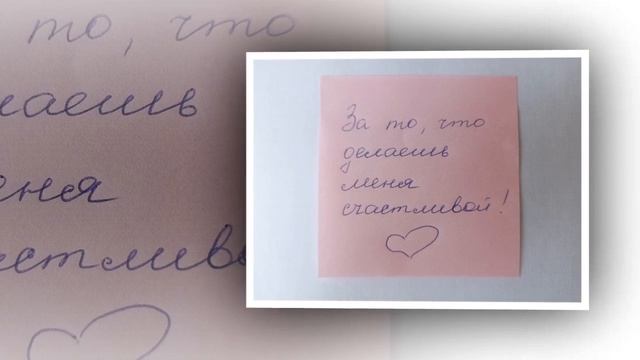 За то, что
делаешь
меня
счастливой!
то, что
лаешь
еня
астлив